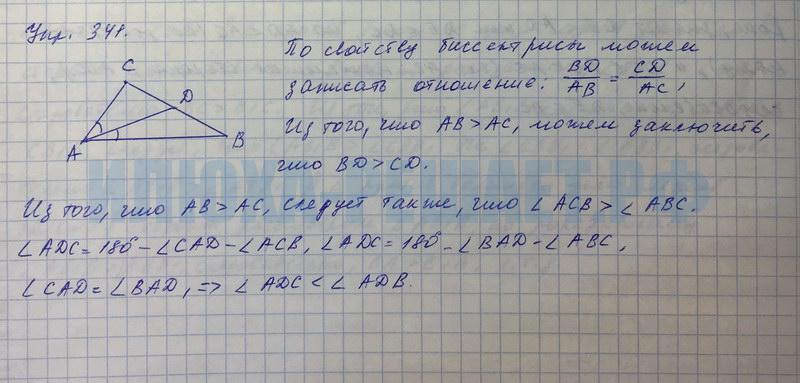 Упр. 341.
C
D
A
B
По свойству биссектрисы можем
записать отношение: BD/AB = CD/AC,
Из того, что AB > AC, можем заключить,
что BD > CD.
Из того, что AB > AC, следует также, что ∠ ACB > ∠ ABC.
∠ ADC = 180° - ∠CAD - ∠ACB, ∠ ADC = 180° - ∠BAD - ∠ABC,
∠ CAD = ∠BAD, => ∠ ADC < ∠ ADB.